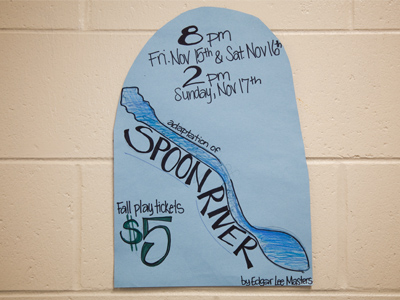 8 pm
Fri. Nov 15th & Sat Nov 16th
2 pm
Sunday, Nov 17th
adaptation of
SPOON RIVER
Fall play tickets
$5
by Edgar Lee Masters